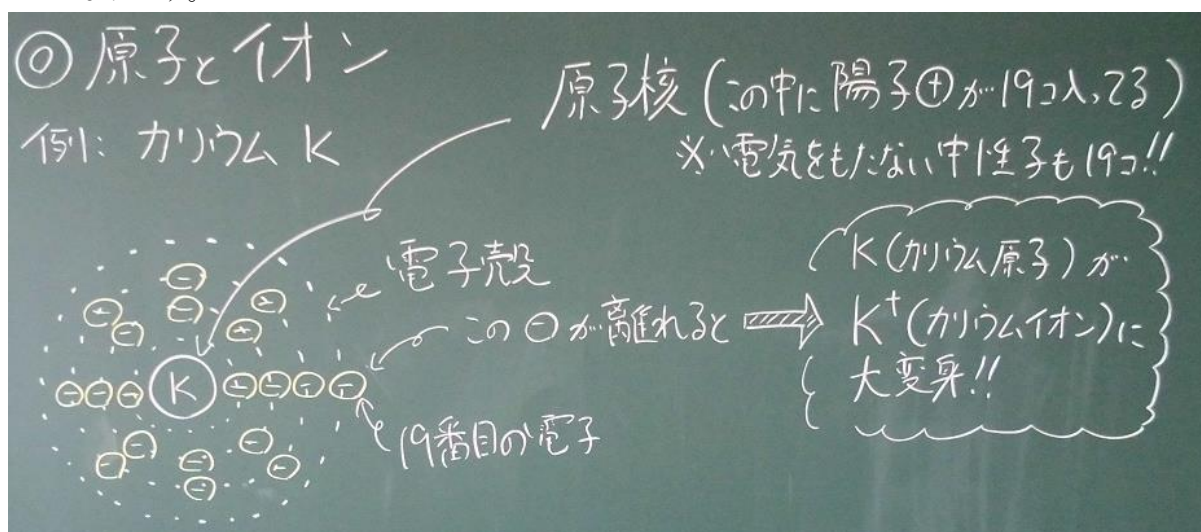 ◎原子とイオン
例: カリウム K
原子核(この中に陽子⊕が19コ入ってる)
※電気をもたない中性子も19コ!!
電子殻
この⊖が離れると
19番目の電子
K(カリウム原子)が
K⁺(カリウムイオン)に
大変身!!
K